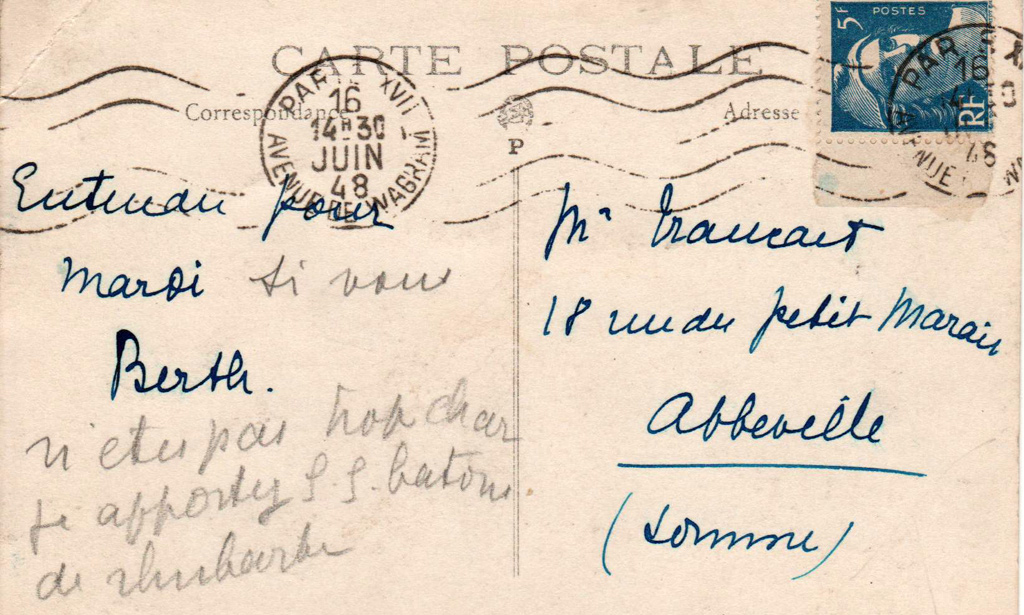 CARTE POSTALE
Correspondance
Adresse
P
PARIS XVII
16
14H30
JUIN
48
AVENUE DE WAGRAM
5F POSTES
RF
PARIS X
16
14
48
AVENUE W
Entendu pour
Mardi si vous
Berth.
n'etes pas trop char
ge apportez q.q. batons
de rhubarbe
Mr Francart
18 rue du petit Marais
Abbeville
(Somme)